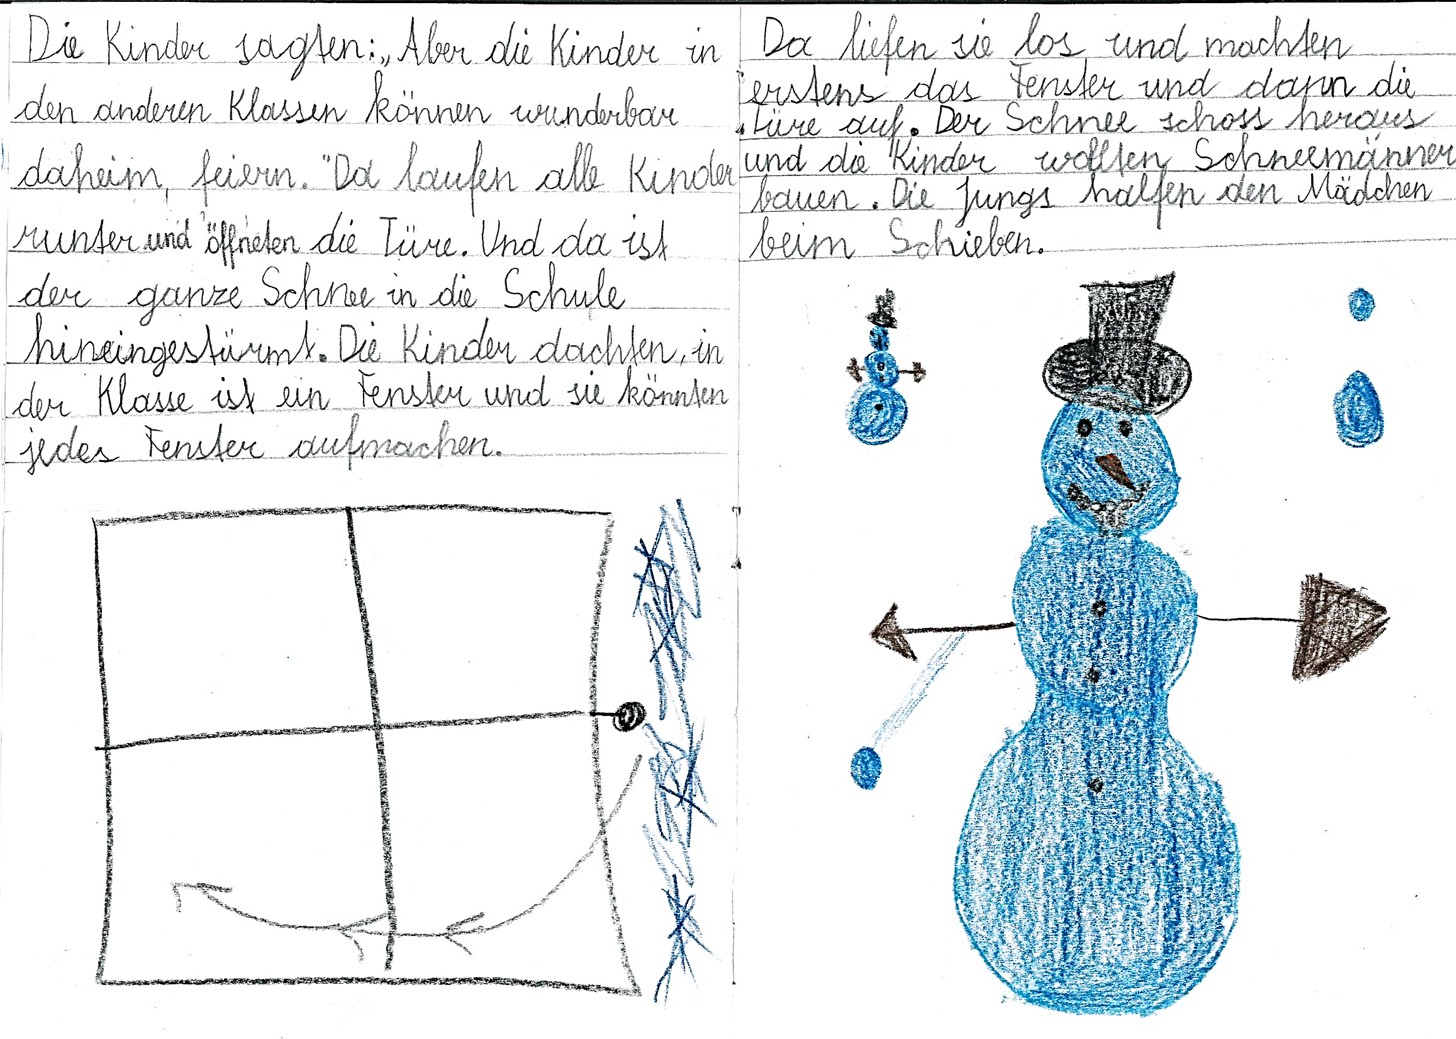 Die Kinder sagten: „Aber die Kinder in
den anderen Klassen können wunderbar
daheim, feiern." Da laufen alle Kinder
runter und öffneten die Türe. Und da ist
der ganze Schnee in die Schule
hineingestürmt. Die Kinder dachten, in
der Klasse ist ein Fenster und sie könnten
jedes Fenster aufmachen.
Da liefen sie los und machten
erstens das Fenster und dann die
Türe auf. Der Schnee schoss heraus
und die Kinder wollten Schneemänner
bauen. Die Jungs halfen den Mädchen
beim Schieben.